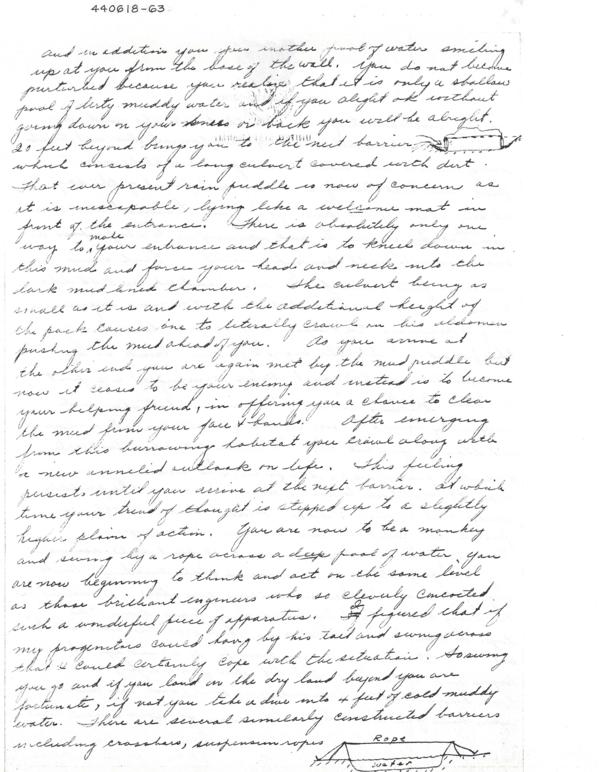 440618-63
and in addition you see another pool of water smiling
up at you from the base of the wall. You do not become
perturbed because you realize that it is only a shallow
pool of dirty muddy water and if you alight ok without
going down on your knees or back you will be alright.
20 feet beyond brings you to the next barrier
which consists of a long culvert covered with dirt.
That ever present rain puddle is now of concern as
it is inescapable, lying like a welcome mat in
front of the entrance. There is absolutely only one
way to make your entrance and that is to kneel down in
this mud and force your head and neck into the
dark mud lined chamber. The culvert being as
small as it is and with the additional height of
the pack causes one to literally crawl on his abdomen
pushing the mud ahead of you. As you arrive at
the other end you are again met by the mud puddle but
now it ceases to be your enemy and instead is to become
your helping friend, in offering you a chance to clear
the mud from your face & hands. After emerging
from this burrowing habitat you crawl along with
a new annelid outlook on life. This feeling
persists until you arrive at the next barrier. At which
time your trend of thought is stepped up to a slightly
higher plain of action. You are now to be a monkey
and swing by a rope across a deep pool of water, you
are now beginning to think and act on the same level
as those brilliant engineers who so cleverly concocted
such a wonderful piece of apparatus. I figured that if
my progenitors could hang by his tail and swing across
that I could certainly cope with the situation. So swing
you go and if you land on the dry land beyond you are
fortunate, if not you take a dive into 4 feet of cold muddy
water. There are several similarly constructed barriers
including crossbars, suspension ropes
Rope
water